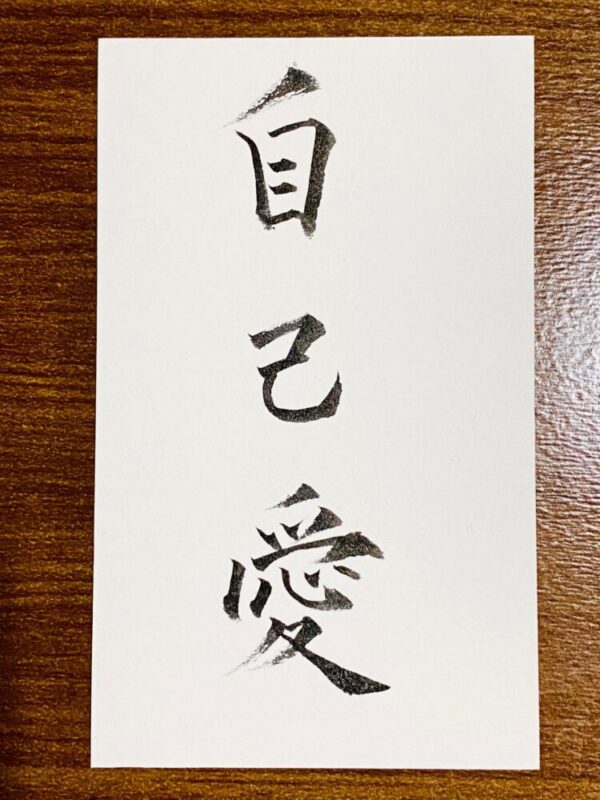 自己愛